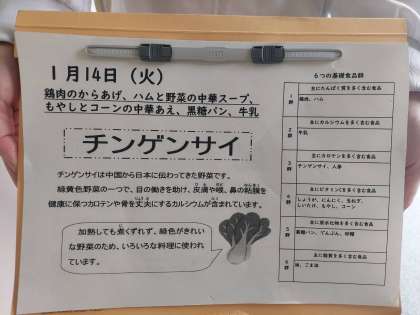 1月14日（火）
鶏肉のからあげ、ハムと野菜の中華スープ、
もやしとコーンの中華あえ、黒糖パン、牛乳
チンゲンサイ
チンゲンサイは中国から日本に伝わってきた野菜です。
緑黄色野菜の一つで、目の働きを助け、皮膚や喉、鼻の粘膜を
健康に保つカロテンや骨を丈夫にするカルシウムが含まれています。
加熱しても煮くずれず、緑色がきれい
な野菜のため、いろいろな料理に使われ
ています。
６つの基礎食品群
主にたんぱく質を多く含む食品
1群
鶏肉、ハム
主にカルシウムを多く含む食品
2群
牛乳
主にカロテンを多く含む食品
3群
チンゲンサイ、人参
主にビタミンCを多く含む食品
4群
しょうが、にんにく、玉ねぎ、
しいたけ、もやし、コーン
主に炭水化物を多く含む食品
5群
黒糖パン、でんぷん、砂糖
主に脂質を多く含む食品
6群
油、ごま油